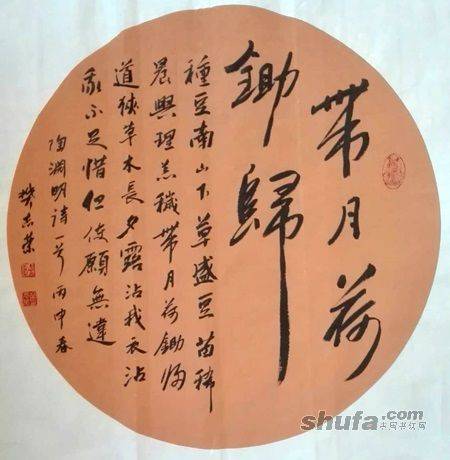 帶月荷
鋤歸
種豆南山下草盛豆苗稀
晨興理荒穢帶月荷鋤歸
道狹草木長夕露沾我衣沾
衣不足惜但使願無違
陶淵明詩一首 丙申春
shufa.com